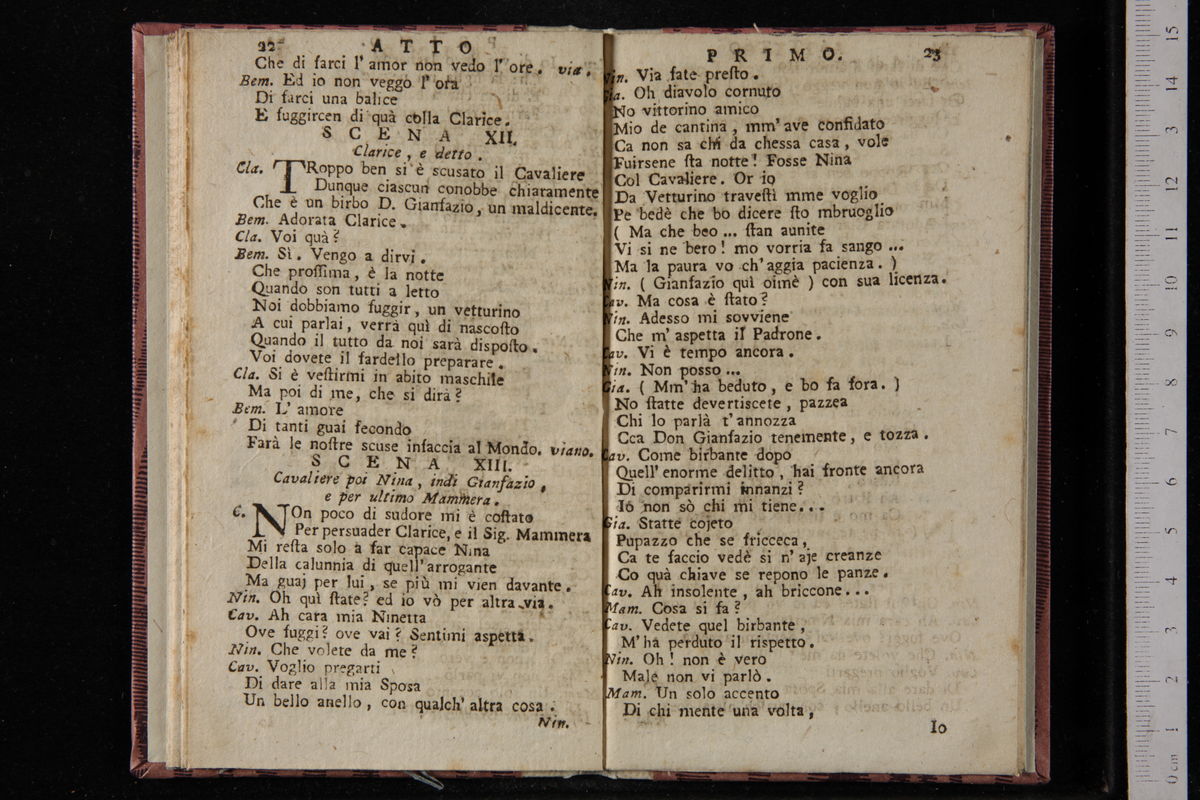 22 ATTO
Che di farci l' amor non vedo l' ore. via.
Bem. Ed io non veggo l' ora
Di farci una balice
E fuggircen di quà colla Clarice.
SCENA XII.
Clarice, e detto.
Cla. TRoppo ben si è scusato il Cavaliere
Dunque ciascun conobbe chiaramente
Che è un birbo D. Gianfazio, un maldicente.
Bem. Adorata Clarice.
Cla. Voi quà?
Bem. Sì. Vengo a dirvi.
Che proſſima, è la notte
Quando son tutti a letto
Noi dobbiamo fuggir, un vetturino
A cui parlai, verrà quì di nascoſto
Quando il tutto da noi sarà dispoſto.
Voi dovete il fardello preparare.
Cla. Si è veſtirmi in abito maschile
Ma poi di me, che si dirà?
Bem. L' amore
Di tanti guai fecondo
Farà le noſtre scuse infaccia al Mondo. viano.
SCENA XIII.
Cavaliere poi Nina, indi Gianfazio,
e per ultimo Mammera.
C. NOn poco di sudore mi è coſtato
Per persuader Clarice, e il Sig. Mammera
Mi reſta solo a far capace Nina
Della calunnia di quell' arrogante
Ma guaj per lui, se più mi vien davante.
Nin. Oh quì ſtate? ed io vò per altra via.
Cav. Ah cara mia Ninetta
Ove fuggi? ove vai? Sentimi aspetta.
Nin. Che volete da me?
Cav. Voglio pregarti
Di dare alla mia Sposa
Un bello anello, con qualch' altra cosa.
Nin.
PRIMO. 23
Nin. Via fate preſto.
Gia. Oh diavolo cornuto
No vittorino amico
Mio de cantina, mm' ave confidato
Ca non sa chi da chessa casa, vole
Fuirsene ſta notte! Fosse Nina
Col Cavaliere. Or io
Da Vetturino traveſti mme voglio
Pe bedè che bo dicere ſto mbruoglio
( Ma che beo ... ſtan aunite
Vi si ne bero! mo vorria fa sango ...
Ma la paura vo ch' aggia pacienza. )
Nin. ( Gianfazio quì oimè ) con sua licenza.
Cav. Ma cosa è ſtato?
Nin. Adesso mi sovviene
Che m' aspetta il Padrone.
Cav. Vi è tempo ancora.
Nin. Non posso ...
Gia. ( Mm' ha beduto, e bo fa fora. )
No ſtatte devertiscete, pazzea
Chi lo parlà t' annozza
Cca Don Gianfazio tenemente, e tozza.
Cav. Come birbante dopo
Quell' enorme delitto, hai fronte ancora
Di comparirmi innanzi?
Io non sò chi mi tiene...
Gia. Statte cojeto
Pupazzo che se fricceca,
Ca te faccio vedè si n' aje creanze
Co quà chiave se repono le panze.
Cav. Ah insolente, ah briccone...
Mam. Cosa si fa?
Cav. Vedete quel birbante,
M' ha perduto il rispetto.
Nin. Oh! non è vero
Male non vi parlò.
Mam. Un solo accento
Di chi mente una volta,
Io